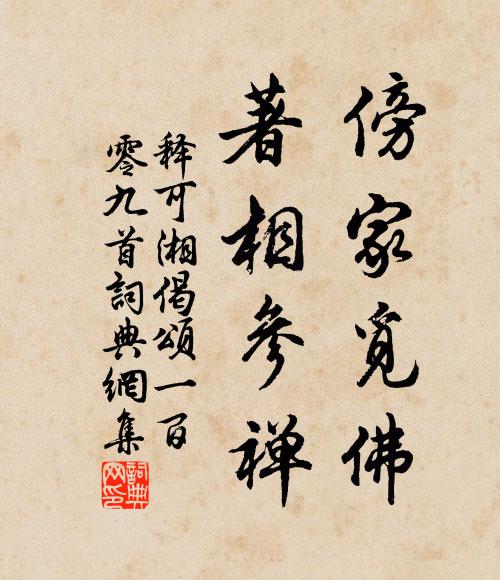 傍家覓佛
著相參禅
釋可湘偈頌一百
零九首詞典網集
詞典网印